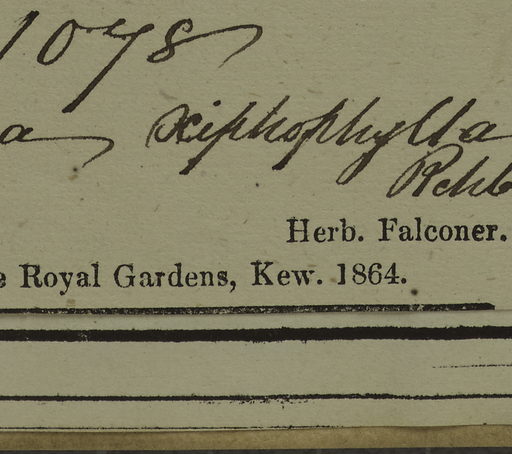 1078
a xiphophylla
Rchb
Herb. Falconer.
e Royal Gardens, Kew. 1864.